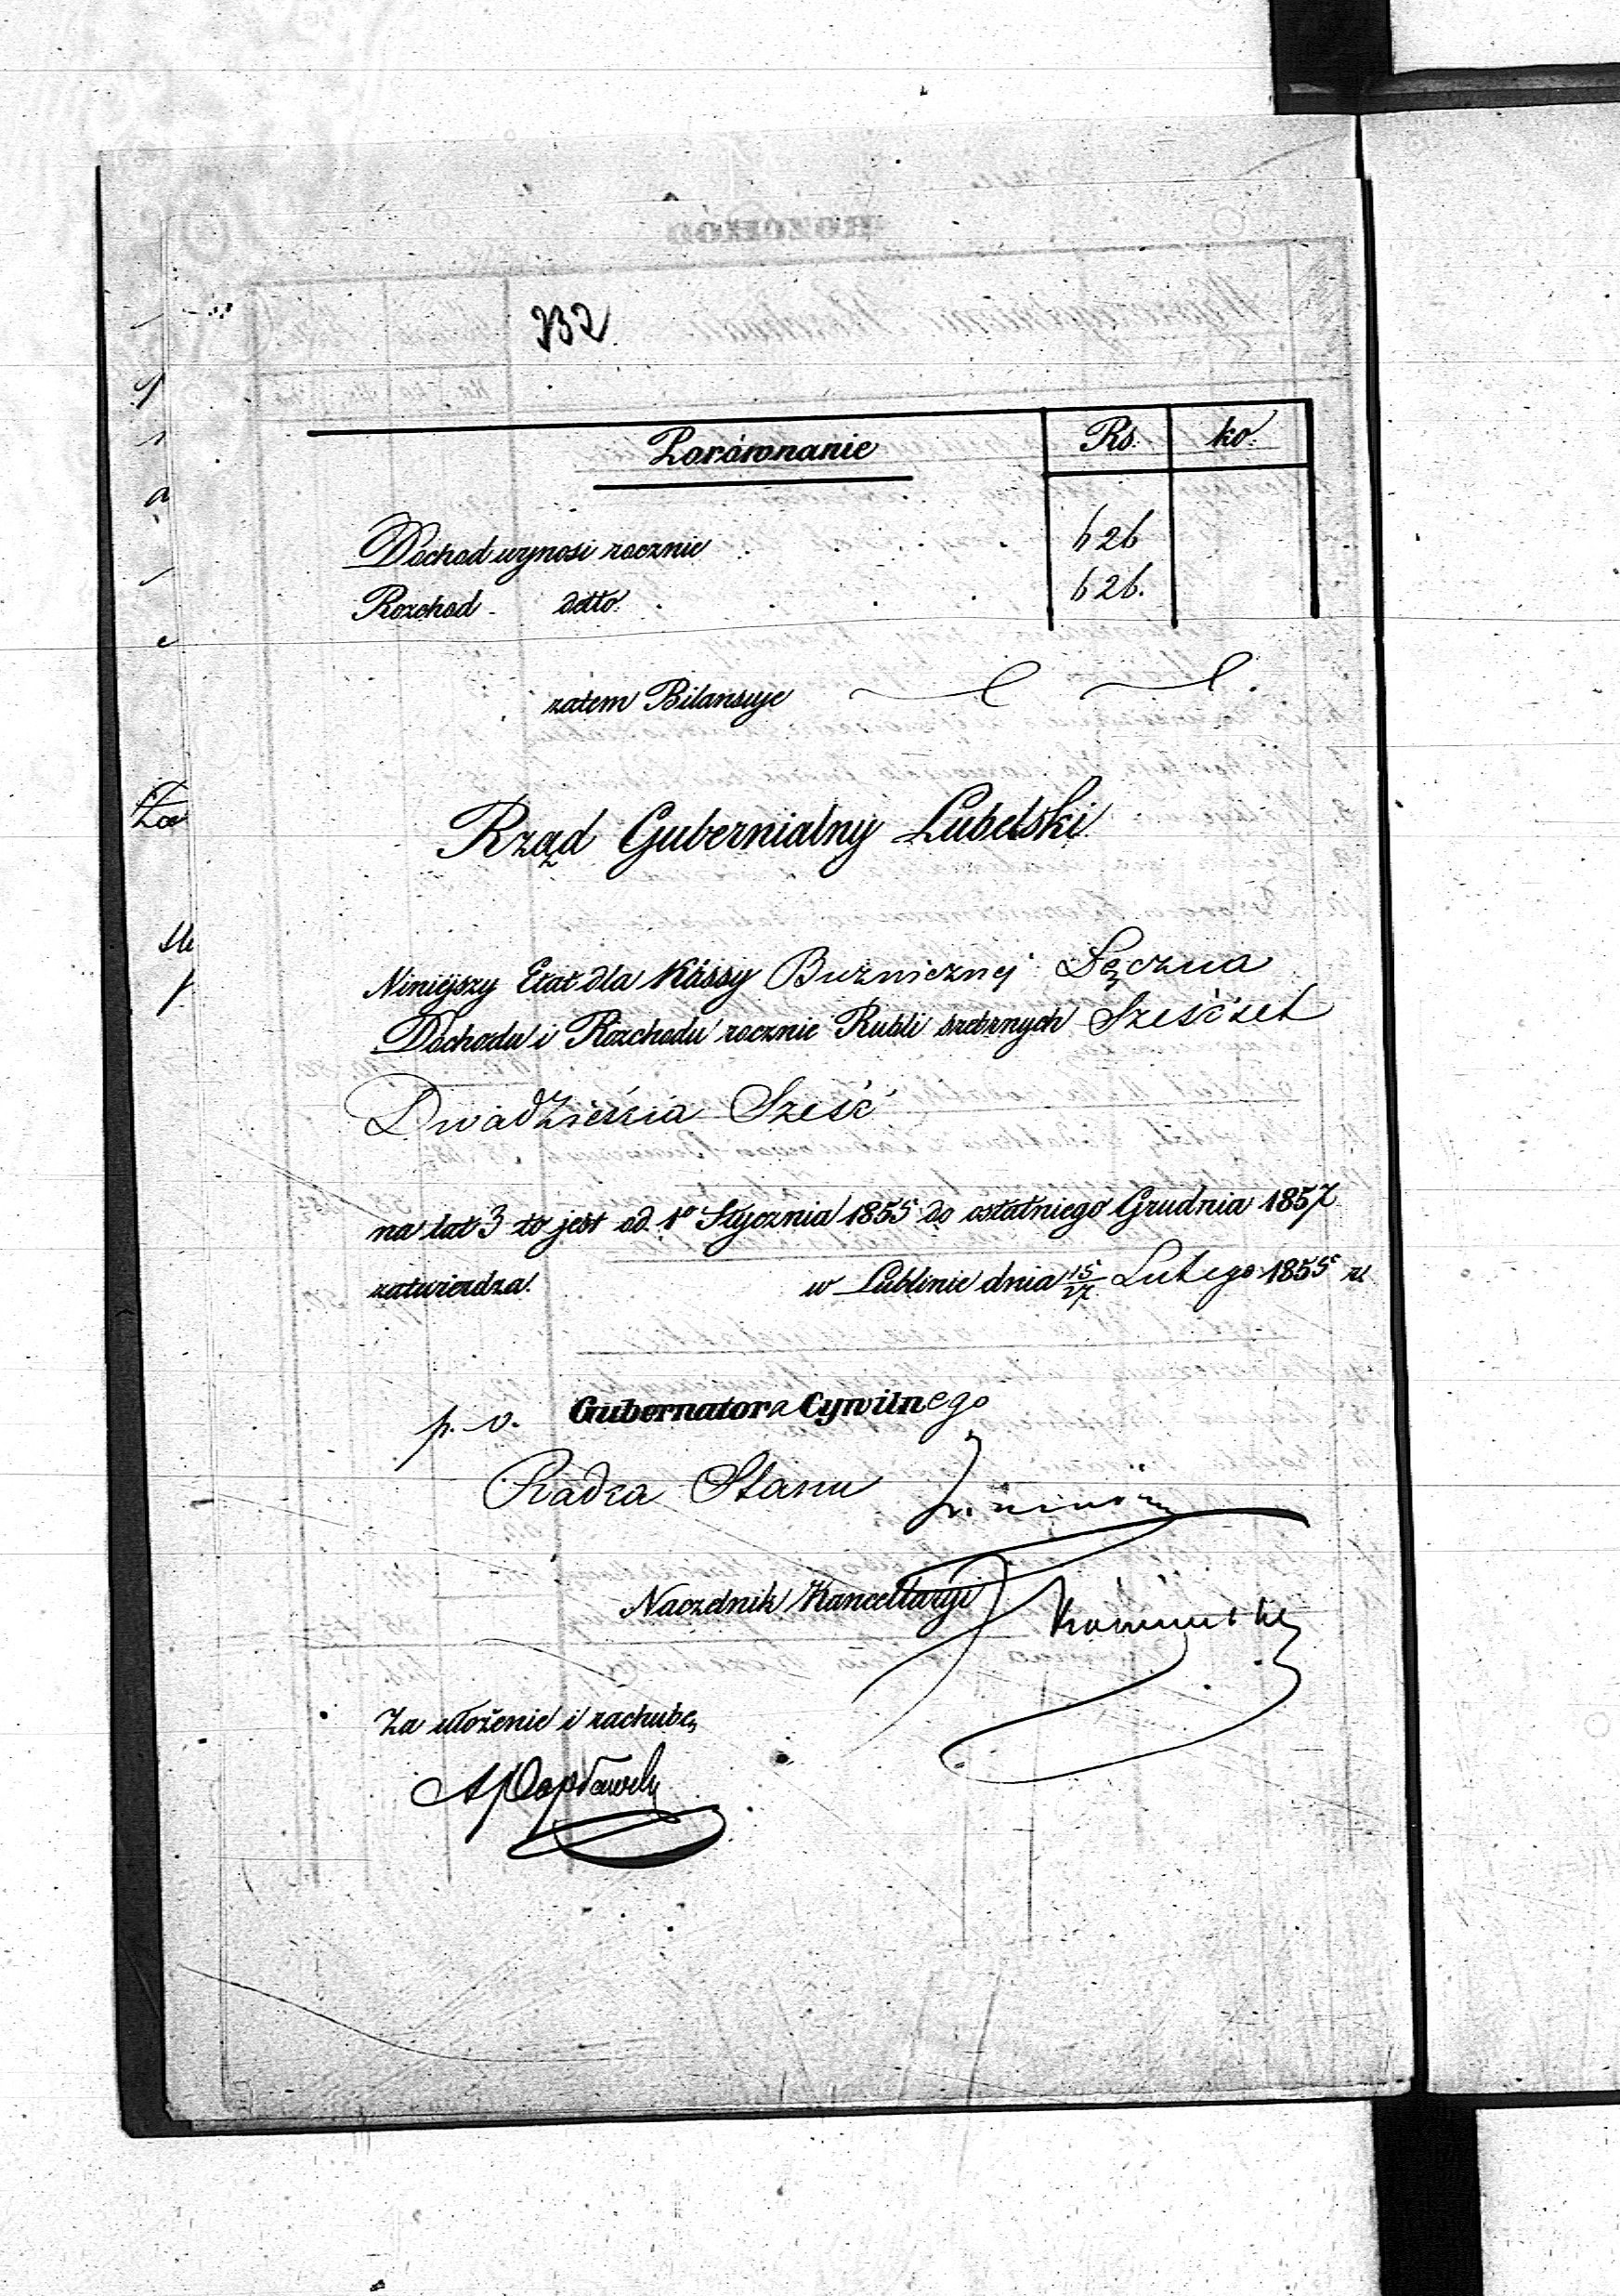 232
Porównanie Rs. ko.
Dochod wynosi rocznie . . . . 626
Rozchod - detto . . . . 626.
zatem Bilansuje
Rząd Gubernialny Lubelski
Niniejszy Etat dla Kassy Bużnicznej Łęczna
Dochodu i Rozchodu rocznie Rubli srebrnych Sześćset
Dwadzieścia Sześć
na lat 3 to jest od 1o Stycznia 1855 do ostatniego Grudnia 1857
zatwierdza. w Lublinie dnia 15/27 Lutego 1855 r.
p. o. Gubernatora Cywilnego
Radca Stanu
Naczelnik Kancellaryi
Za ułożenie i rachubę